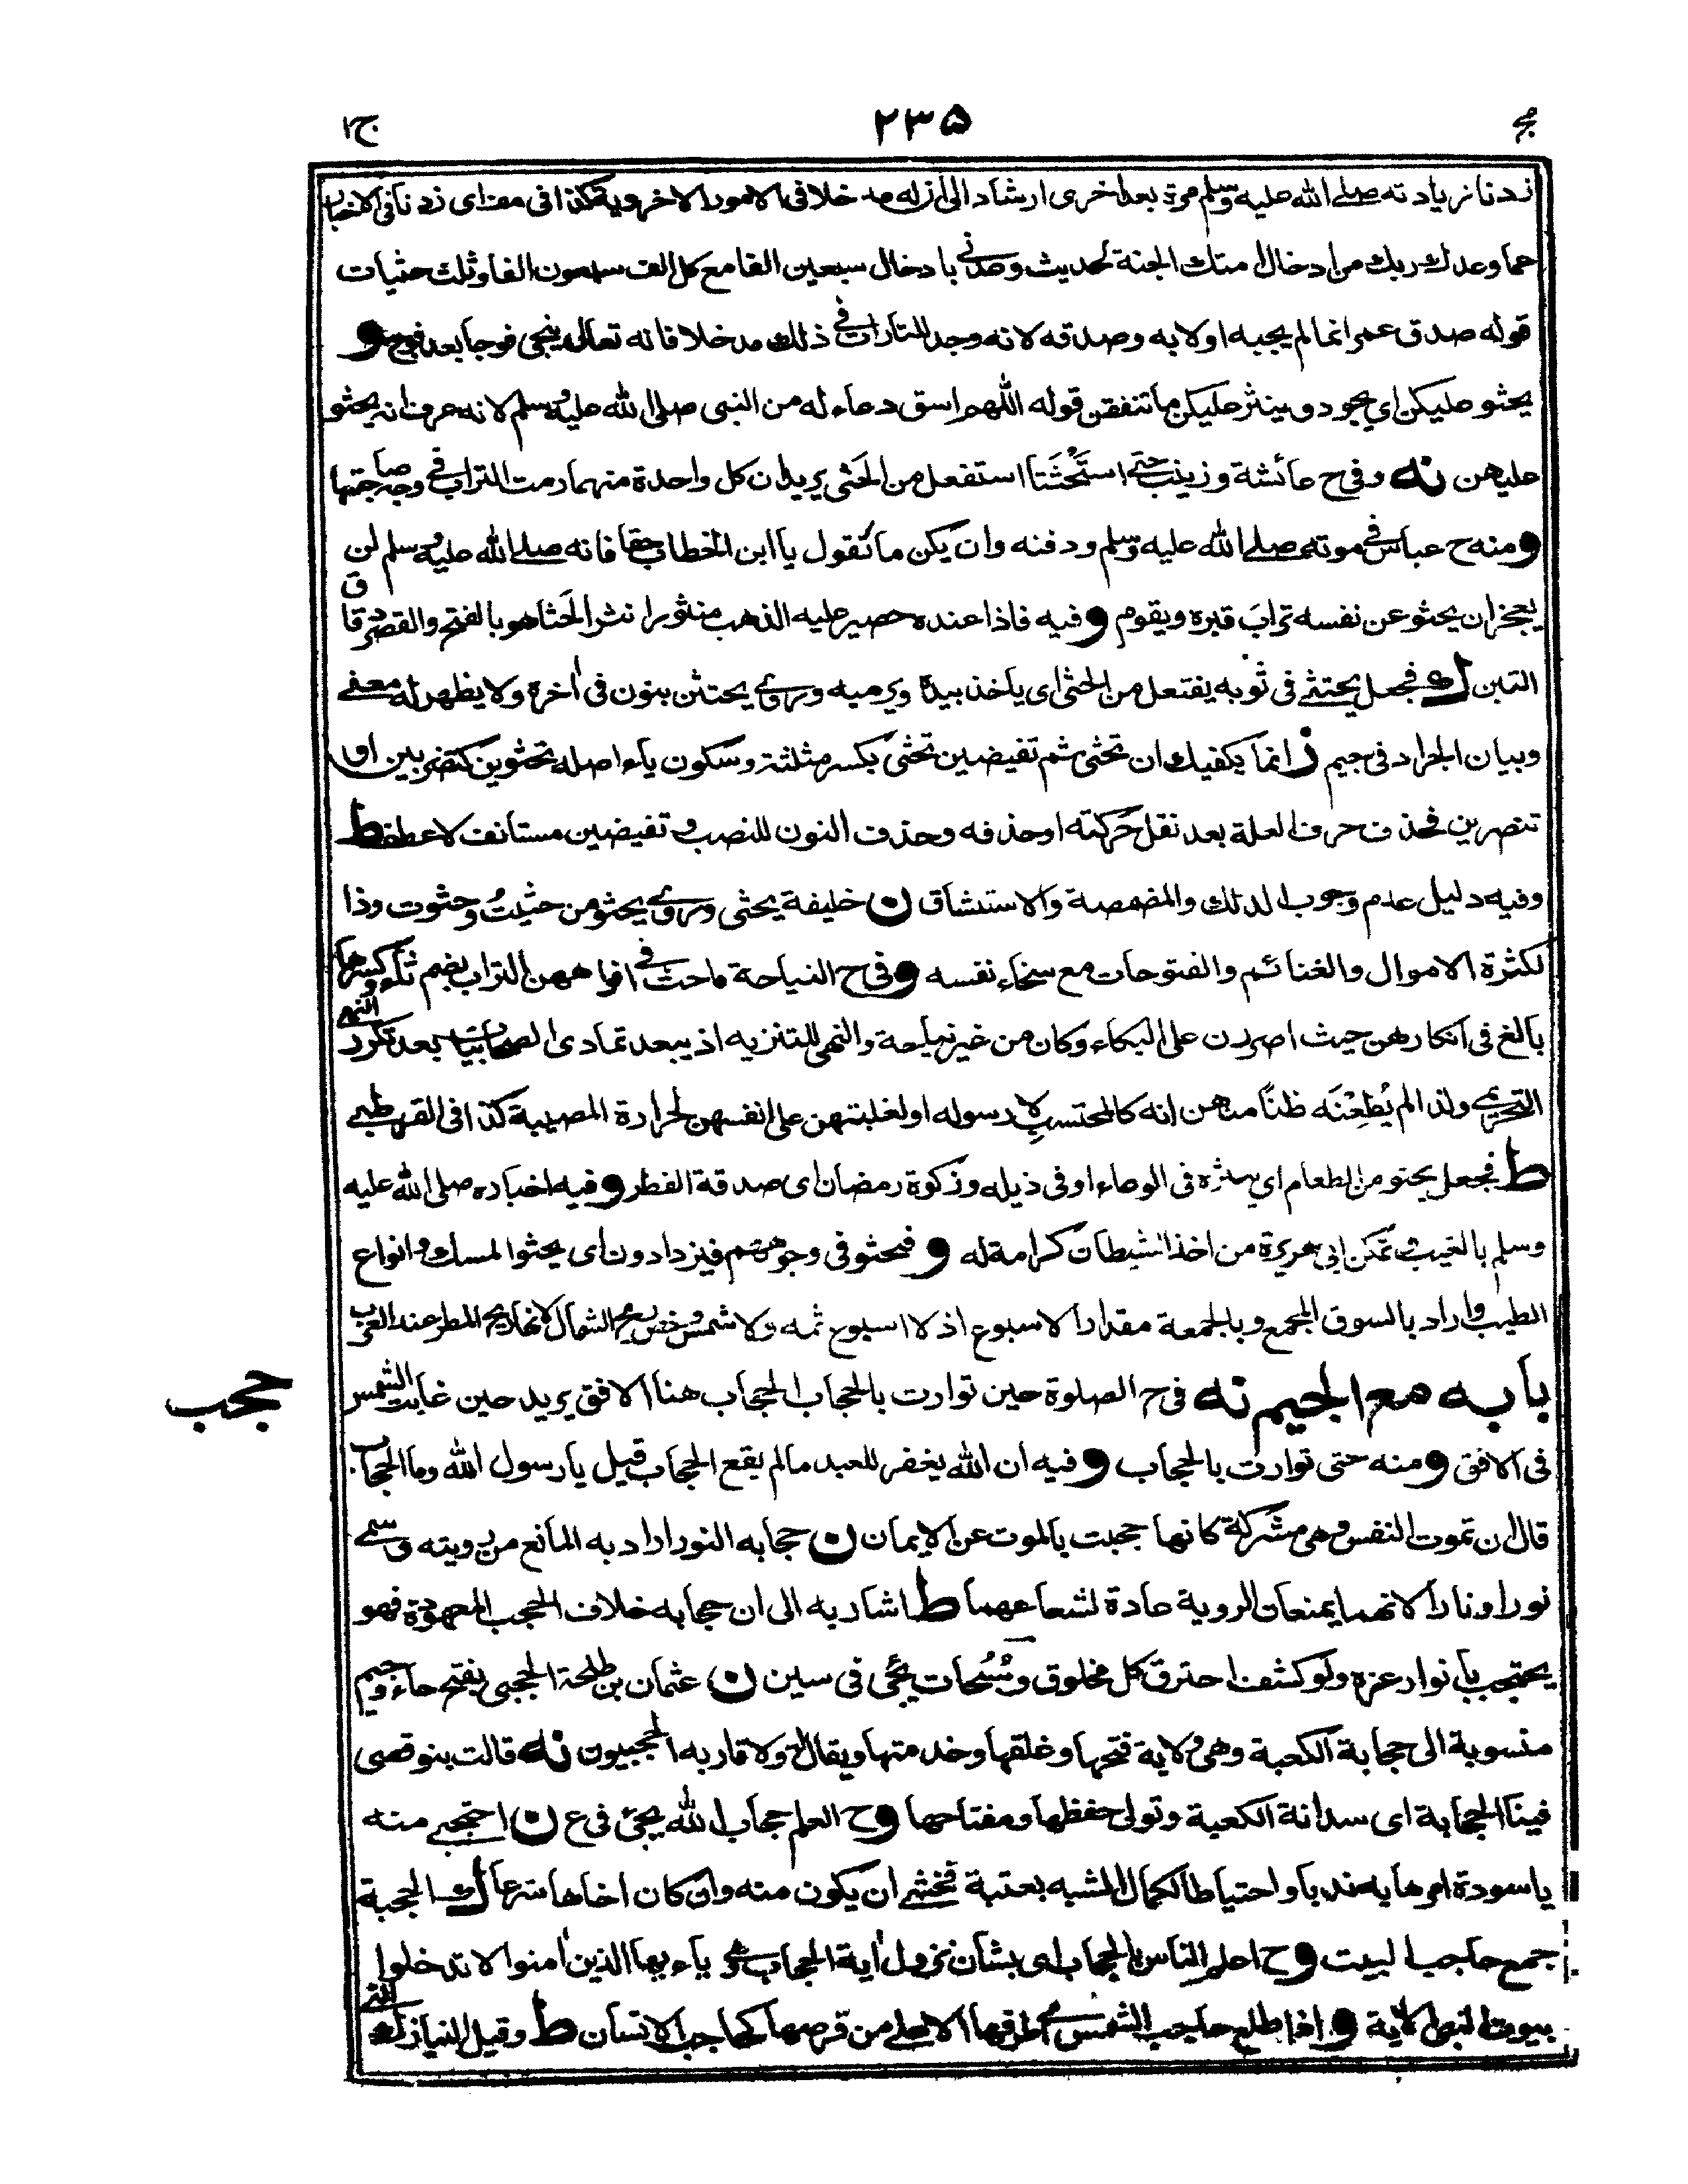 ج١ ٢٣٥
زدنا زيادته صلى الله عليه وسلم مرة بعد اخرى ارشاد الى ان له مدخلا فى الامور الاخروية كذا فى معناى زدنا فى الاخبار
عما وعدك ربك من ادخال امتك الجنة لحديث وعدنى بادخال سبعين الفا مع كل الف سبعون الفا وثلث حثيات
قوله صدق عمر انما لم يجبه اولا به وصدقه لانه وجد للتارات فى ذلك مدخلا فانه تعالى ينجى فوجا بعد فوج و
يحثو عليكن اي يجود وينثر عليكن ما تنفقن قوله اللهم اسق دعاء له من النبى صلى الله عليه وسلم لانه عرف انه يحثو
عليهن نه وفى ح عائشة وزينب حتى استحثتا استفعل من الحثى يريد ان كل واحدة منهما رمت التراب فى وجه صاحبتها
ومنه ح عباس فى موته صلى الله عليه وسلم ودفنه وان يكن ما تقول يا ابن الخطاب حقا فانه صلى الله عليه وسلم لن
يعجز ان يحثو عن نفسه تراب قبره ويقوم وفيه فاذا عنده حصير عليه الذهب منثورا نثر الحثا هو بالفتح والقصر دقاق
التبن ك فجعل يحتثى فى ثوبه يفتعل من الحثى اى ياخذ بيده ويرميه وروى يحتثن بنون فى اخره ولا يظهر له معنى
وبيان الجراد فى جيم ز انما يكفيك ان تحثى ثم تفيضين تحثى بكسر مثلثة وسكون ياء اصله تحثوين كتضربين او
تنصرين فحذف حرف العلة بعد نقل حركته او حذفه وحذف النون للنصب وتفيضين مستانف لا عطف ط
وفيه دليل عدم وجوب الدلك والمضمضة والاستنشاق ن خليفة يحثى وروى يحثو من حثيت وحثوت وذا
لكثرة الاموال والغنائم والفتوحات مع سخاء نفسه وفى ح النياحة فاحث فى افواههن التراب بضم ثاء وكسرها
بالغ فى انكارهن حيث اصررن على البكاء وكان من غير نياحة والنهى للتنزيه اذ يبعد تمادى الصحابيات بعد تكرر النهى
التحريمى ولذا لم يطعنه ظنا منهن انه كالمحتسب لا رسوله او لغلبتهن على انفسهن لحرارة المصيبة كذا فى القرطبى
ط فجعل يحثو من الطعام اي ينثره فى الوعاء او فى ذيله وزكوة رمضان اى صدقة الفطر وفيه اخباره صلى الله عليه
وسلم بالغيب وتمكن ابى هريرة من اخذ الشيطان كرامة له و فتحثو فى وجوههم فيزدادون اى يحثوا المسك وانواع
الطيب واراد بالسوق المجمع وبالجمعة مقدار الاسبوع اذ لا اسبوع ثمه ولا شمس وخص ريح الشمال لانها ريح المطر عند العرب
بابه مع الجيم نه فى ح الصلوة حين توارت بالحجاب الحجاب هنا الافق يريد حين غابت الشمس
حجب
فى الافق ومنه حتى توارت بالحجاب وفيه ان الله يغفر للعبد ما لم يقع الحجاب قيل يا رسول الله وما الحجاب
قال ان تموت النفس وهى مشركة كانها حجبت بالموت عن الايمان ن حجابه النور اراد به المانع من رويته وسمى
نورا ونارا لانهما يمنعان الروية عادة لشعاعهما ط اشار به الى ان حجابه خلاف الحجب المعهودة فهو
يحتجب بانوار عزه ولو كشف احترق كل مخلوق وسبحات يجئ فى سين ن عثمان بن طلحة الحجبى بفتح حاء وجيم
منسوبة الى حجابة الكعبة وهى ولاية فتحها وغلقها وخدمتها ويقال له ولاقاربه الحجبيون نه قالت بنو قصى
فينا الحجابة اى سدانة الكعبة وتولى حفظها ومفتاحها وح العلم حجاب الله يجئ فى ع ن احتجبى منه
يا سودة امرها به ندبا واحتياطا لكمال الشبه بعتبة فخشى ان يكون منه وان كان اخاها شرعا ك الحجبة
جمع حاجب البيت وح اعلم الناس بالحجاب اى بشان نزول اية الحجاب وهى ياءيها الذين امنوا لا تدخلوا
بيوت النبى الاية و اذا طلع حاجب الشمس اى طرفها الاعلى من قرصها كحاجب الانسان ط وقيل النيازك التى